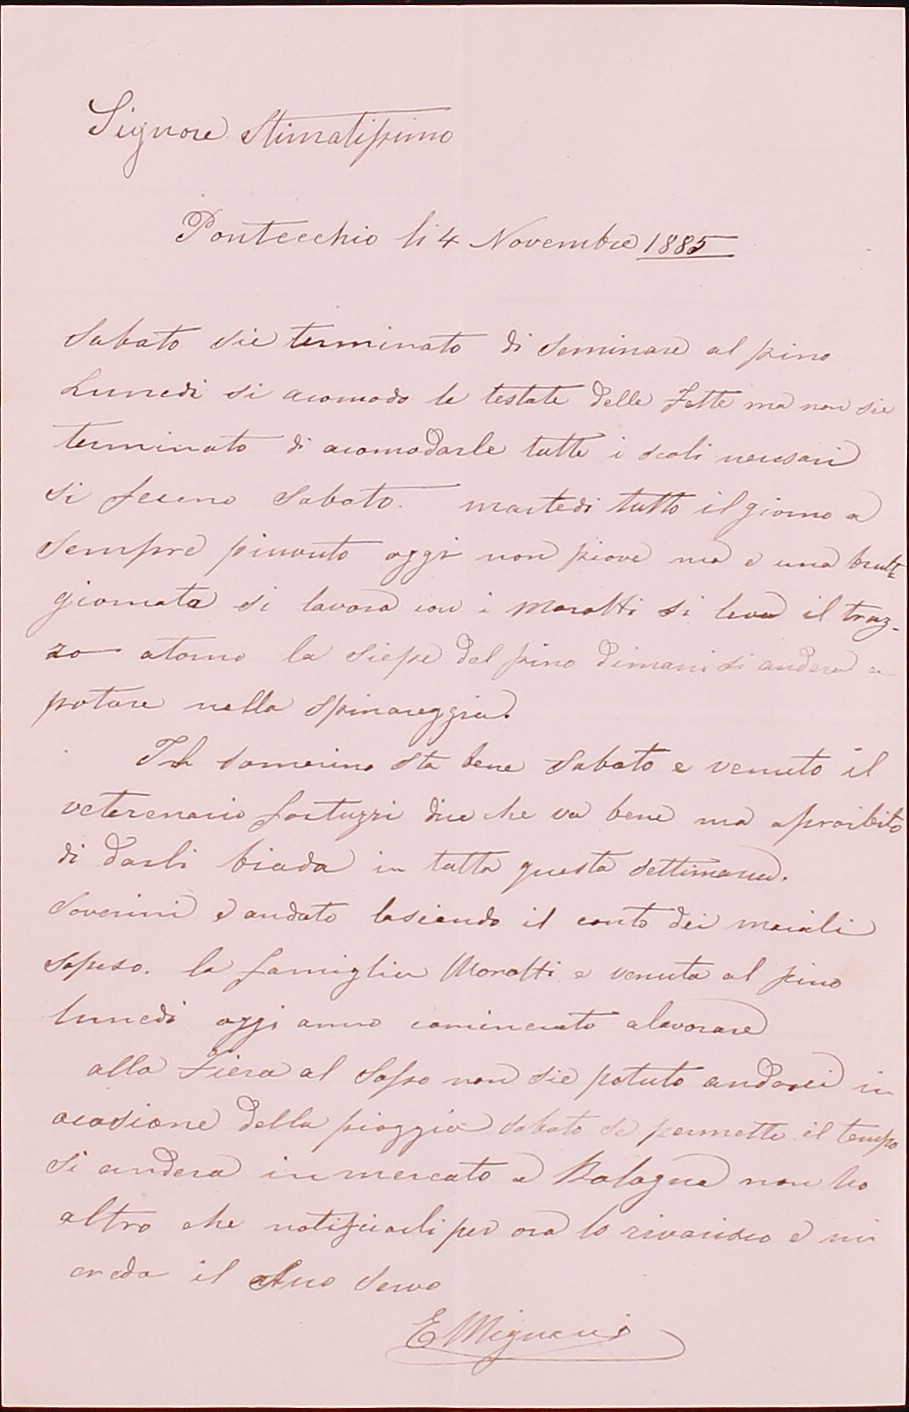 Signore Stimatissimo
Pontecchio li 4 Novembre 1885
Sabato sie terminato di seminare al pino
Lunedi si acomodo le testate delle Fette ma non sie
terminato di acomodarle tutte i scoli necesari
si fecero Sabato. martedi tutto il giorno a
Sempre piovuto oggi non piove ma e una brutta
giornata si lavora con i Moratti si leva il traz-
zo atorno la Siepe del pino dimani si andera a
potare nella Spinareggia.
Il somerino sta bene Sabato e venuto il
veterenario fortuzzi dice che va bene ma aproibito
di darli biada in tutta questa Settimana.
Soverini e andato lasciando il conto dei maiali
Sopeso. la famiglia Moratti e venuta al pino
lunedi oggi anno cominciato alavorare
alla Fiera al Sasso non sie potuto andarci in
ocasione della pioggia sabato se permette il tempo
si andera in mercato a Bologna non ho
altro che notificarli per ora lo riverisco e mi
creda il Suo Servo
E Mignani